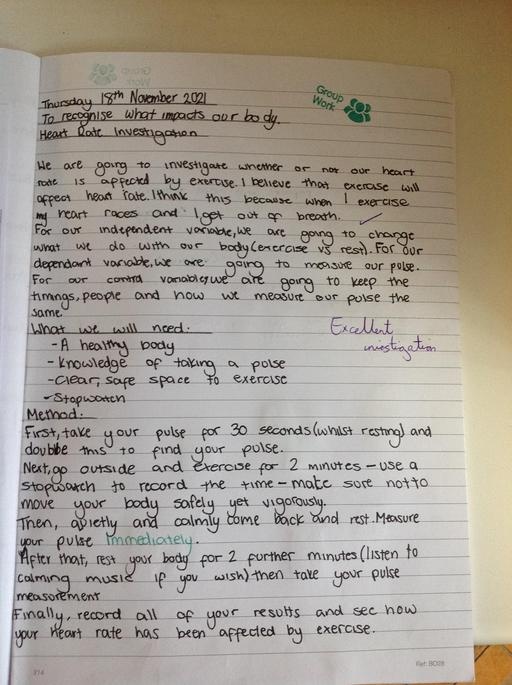 Group
Work
Thursday 18th November 2021
To recognise what impacts our body.
Heart Rate Investigation
We are going to investigate whether or not our heart
rate is affected by exercise. I believe that exercise will
affect heart rate. I think this because when I exercise
my heart races and I get out of breath.
For our independent variable, we are going to change
what we do with our body (exercise vs rest). For our
dependant variable, we are going to measure our pulse.
For our control variables, we are going to keep the
timings, people and how we measure our pulse the
same.
What we will need:
Excellent
investigation
- A healthy body
- Knowledge of taking a pulse
- Clear, safe space to exercise
- Stopwatch
Method:
First, take your pulse for 30 seconds (whilst resting) and
double this to find your pulse.
Next, go outside and exercise for 2 minutes - use a
stopwatch to record the time - make sure not to
move your body safely yet vigorously.
Then, quietly and calmly come back and rest. Measure
your pulse immediately.
After that, rest your body for 2 further minutes (listen to
calming music if you wish) then take your pulse
measurement
Finally, record all of your results and see how
your heart rate has been affected by exercise.
Ref: BO28